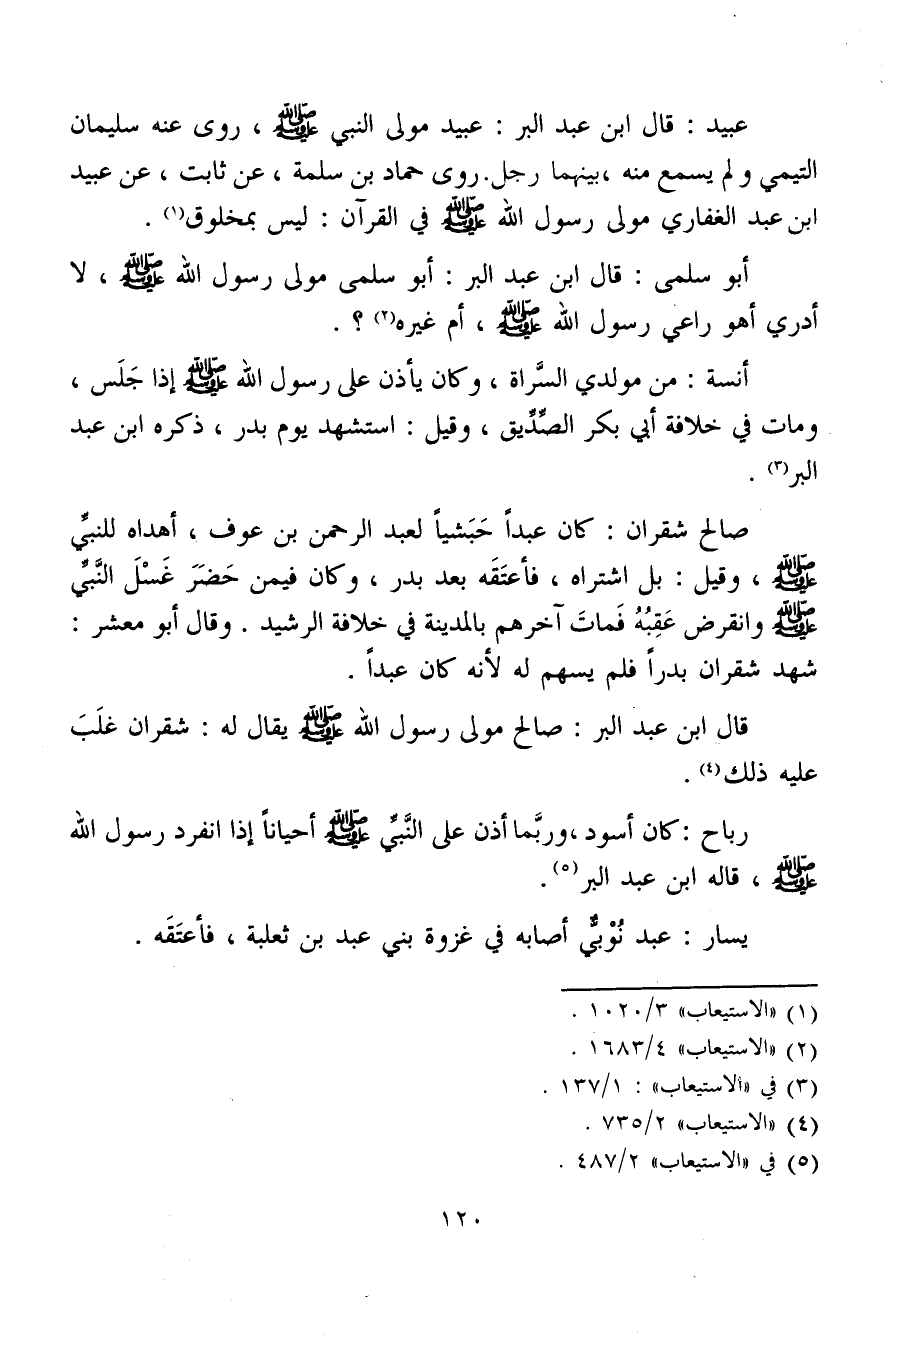 عبيد : قال ابن عبد البر : عبيد مولى النبي ﷺ ، روى عنه سليمان
التيمي و لم يسمع منه ،بينهما رجل.روى حماد بن سلمة ، عن ثابت ، عن عبيد
ابن عبد الغفاري مولى رسول الله ﷺ في القرآن : ليس بمخلوق(١) .
أبو سلمى : قال ابن عبد البر : أبو سلمى مولى رسول الله ﷺ ، لا
أدري أهو راعي رسول الله ﷺ ، أم غيره(٢) ؟ .
أنسة : من مولدي السَّراة ، وكان يأذن على رسول الله ﷺ إذا جَلَس ،
ومات في خلافة أبي بكر الصِّدِّيق ، وقيل : استشهد يوم بدر ، ذكره ابن عبد
البر(٣) .
صالح شقران : كان عبداً حَبَشياً لعبد الرحمن بن عوف ، أهداه للنبيِّ
ﷺ ، وقيل : بل اشتراه ، فأعتَقَه بعد بدر ، وكان فيمن حَضَرَ غَسْلَ النَّبيِّ
ﷺ وانقرض عَقِبُهُ فَماتَ آخرهم بالمدينة في خلافة الرشيد . وقال أبو معشر :
شهد شقران بدراً فلم يسهم له لأنه كان عبداً .
قال ابن عبد البر : صالح مولى رسول الله ﷺ يقال له : شقران غلَبَ
عليه ذلك(٤) .
رباح :كان أسود ،وربَّما أذن على النَّبيِّ ﷺ أحياناً إذا انفرد رسول الله
ﷺ ، قاله ابن عبد البر(٥).
يسار : عبد نُوْبيٌّ أصابه في غزوة بني عبد بن ثعلبة ، فأعتَقَه .
(١) «الاستيعاب» ١٠٢٠/٣ .
(٢) «الاستيعاب» ١٦٨٣/٤ .
(٣) في «الاستيعاب» : ١٣٧/١ .
(٤) «الاستيعاب» ٧٣٥/٢ .
(٥) في «الاستيعاب» ٤٨٧/٢ .
١٢٠